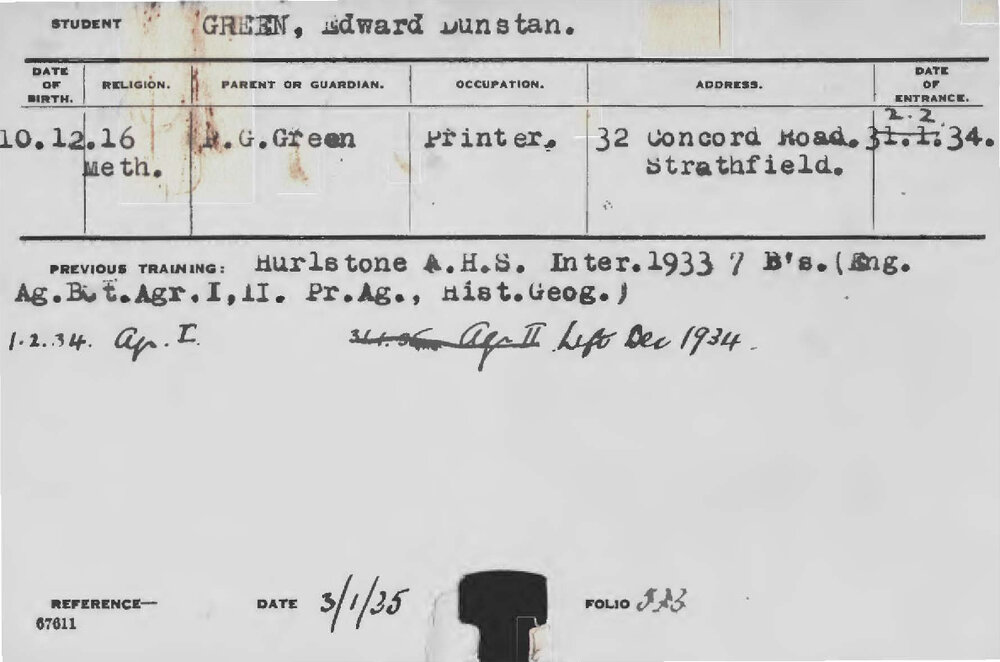 STUDENT GREEN, Edward Dunstan.
DATE OF BIRTH. RELIGION. PARENT OR GUARDIAN. OCCUPATION. ADDRESS. DATE OF ENTRANCE.
2.2.
10.12.16 .G.Green Printer. 32 Concord Road. 31.1.34.
Meth. Strathfield.
PREVIOUS TRAINING: Hurlstone A.H.S. Inter.1933 7 B's.(Eng.
Ag.Bot.Agr.I,II. Pr.Ag., Hist.Geog.)
1.2.34. Agr. I Agr II Left Dec 1934.
REFERENCE— DATE 3/1/35 FOLIO
67611